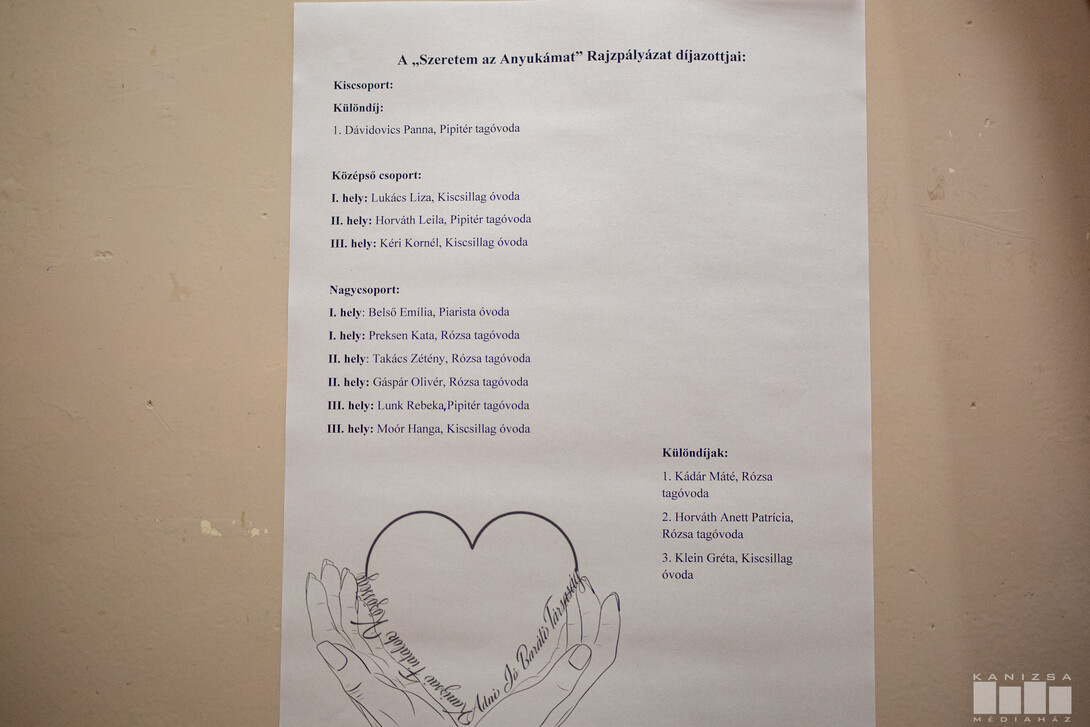 A „Szeretem az Anyukámat” Rajzpályázat díjazottjai:
Kiscsoport:
Különdíj:
1. Dávidovics Panna, Pipitér tagóvoda
Középső csoport:
I. hely: Lukács Liza, Kiscsillag óvoda
II. hely: Horváth Leila, Pipitér tagóvoda
III. hely: Kéri Kornél, Kiscsillag óvoda
Nagycsoport:
I. hely: Belső Emília, Piarista óvoda
I. hely: Preksen Kata, Rózsa tagóvoda
II. hely: Takács Zétény, Rózsa tagóvoda
II. hely: Gáspár Olivér, Rózsa tagóvoda
III. hely: Lunk Rebeka,Pipitér tagóvoda
III. hely: Moór Hanga, Kiscsillag óvoda
Különdíjak:
1. Kádár Máté, Rózsa
tagóvoda
2. Horváth Anett Patrícia,
Rózsa tagóvoda
3. Klein Gréta, Kiscsillag
óvoda
Kanizsai Fiatalok Közösség
Adni Jó Baráti Társaság
KANIZSA
MÉDIAHÁZ